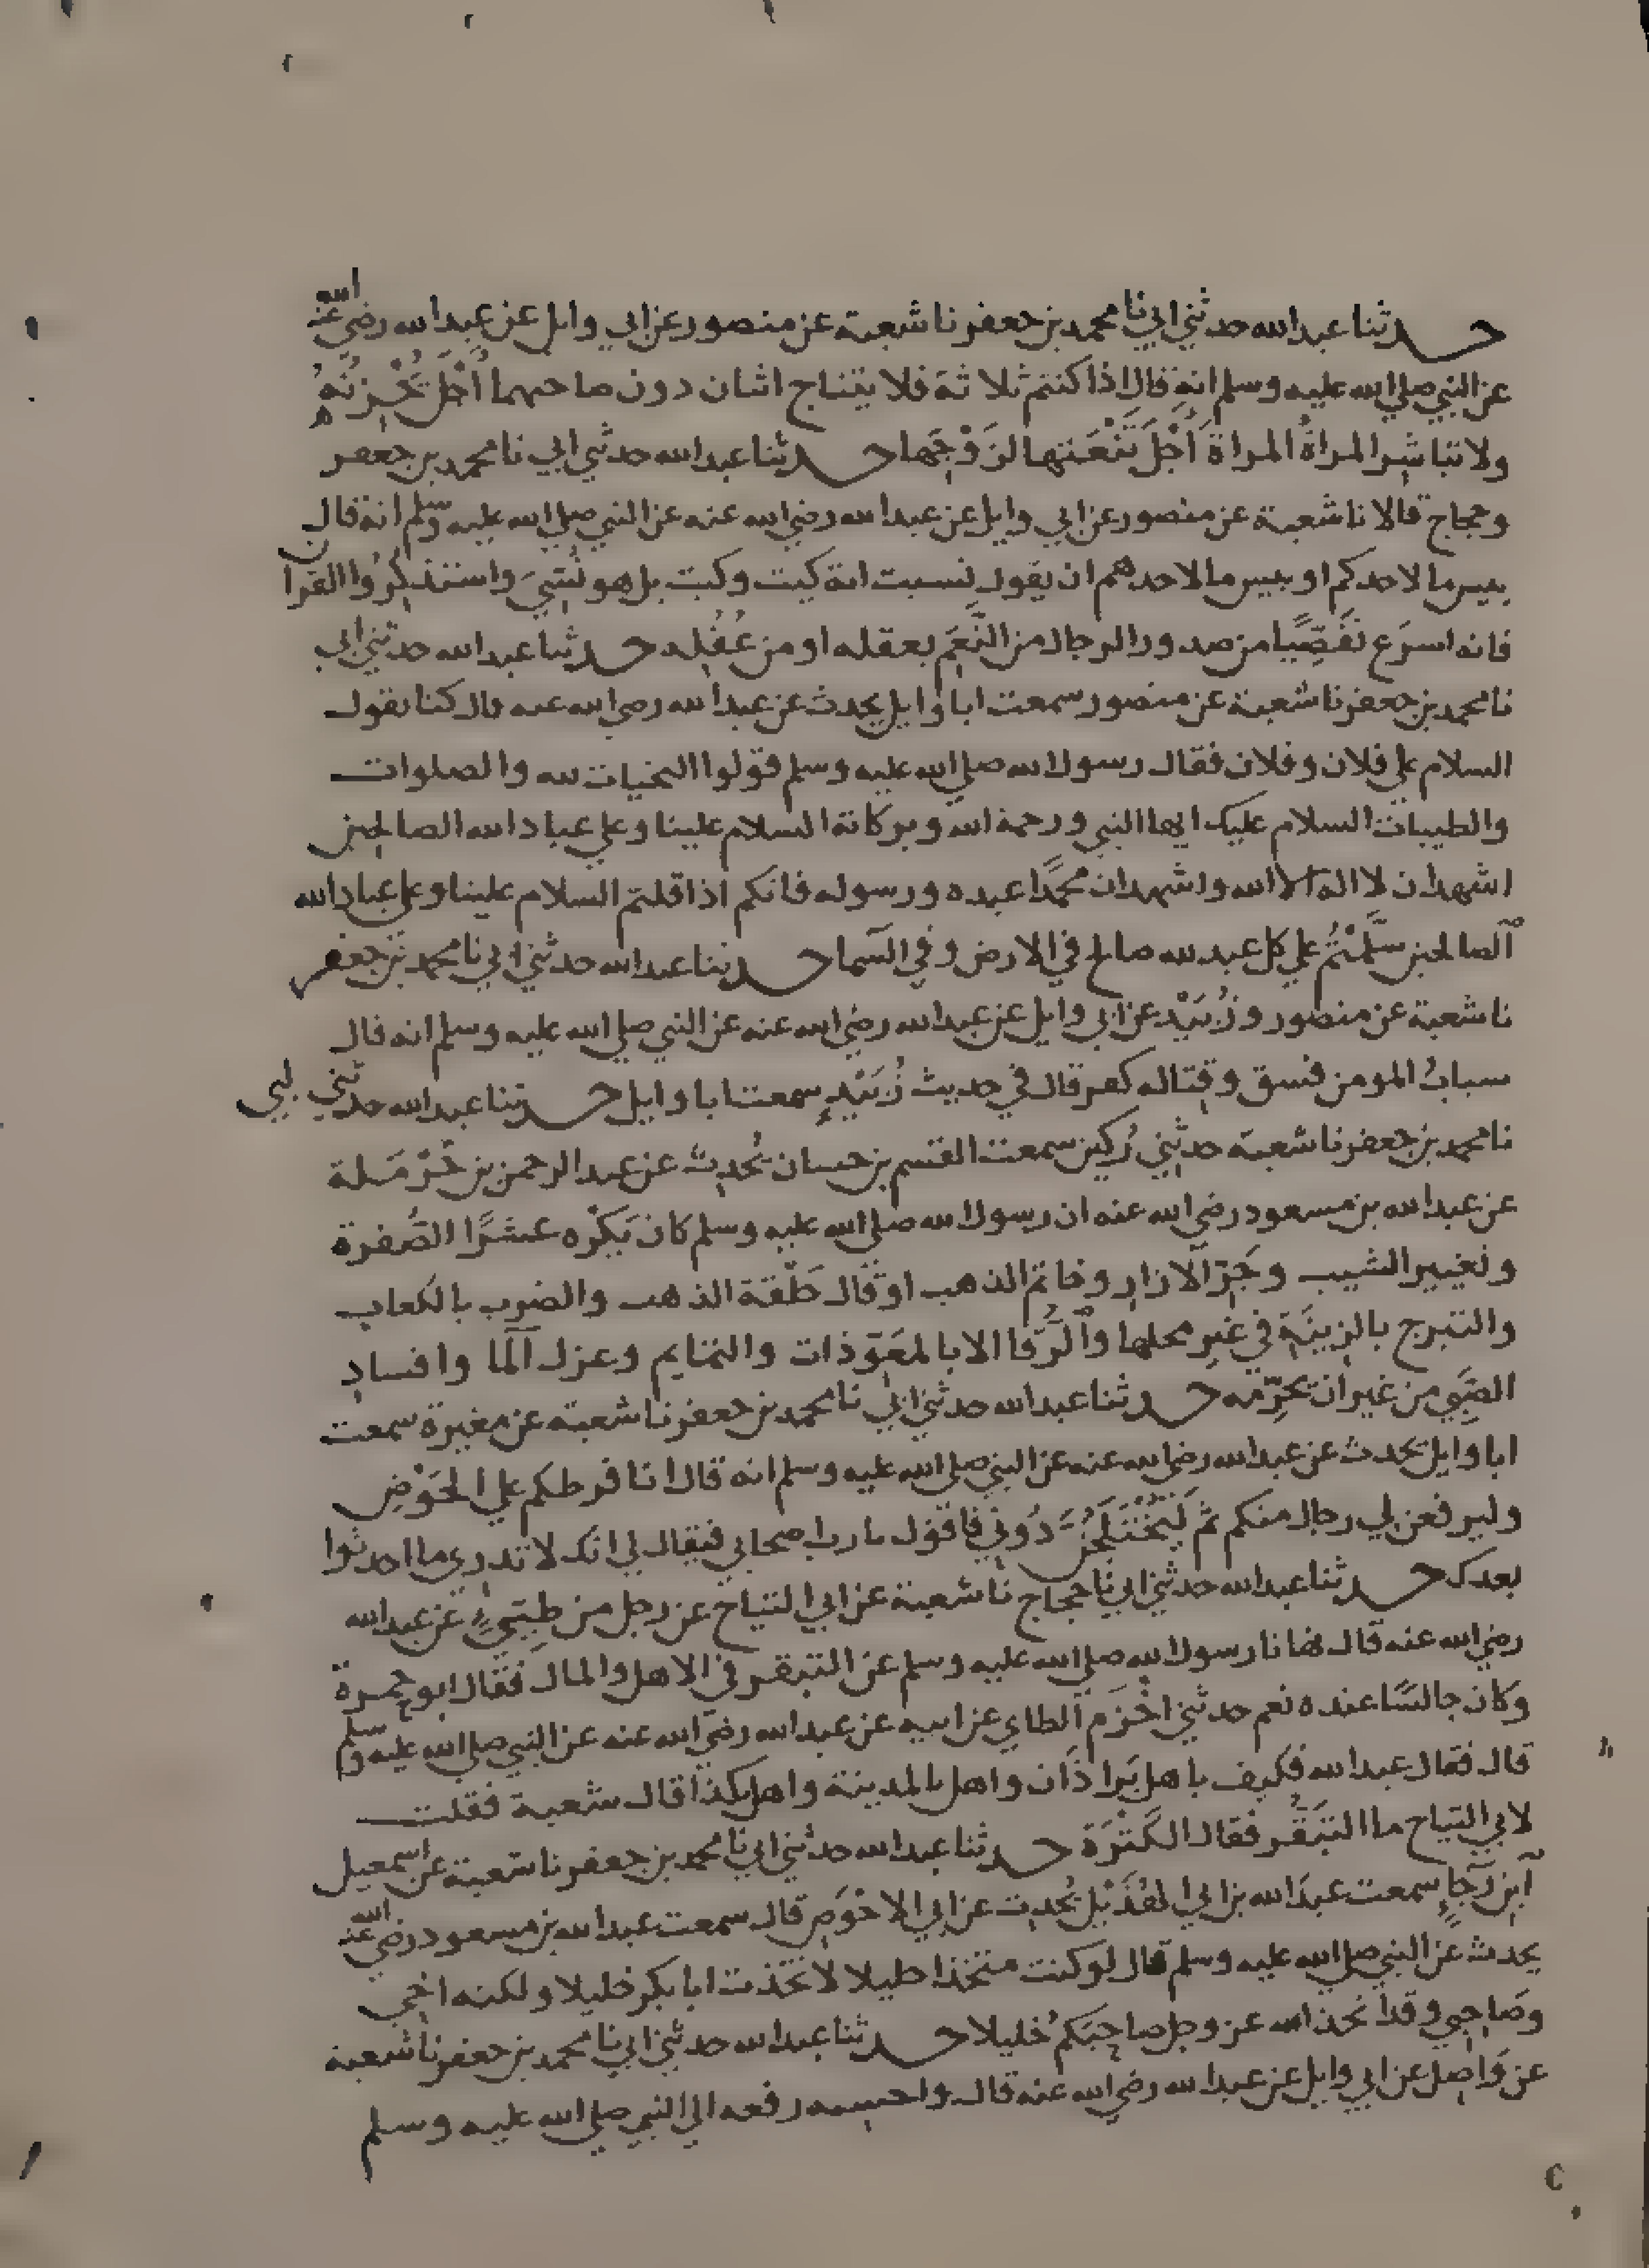 حدثنا عبد الله حدثني ابي نا محمد بن جعفر نا شعبة عن منصور عن ابي وايل عن عبد الله رضي الله عنه
عن النبي صلي الله عليه وسلم انه قال اذا كنتم ثلاثة فلا يتناج اثنان دون صاحبهما أَجْلَ يُحْزِنُهُ
ولا تباشر المراةُ المراةَ أَجْلَ تَنْعَتها لزَوْجِها حدثنا عبد الله حدثني ابي نا محمد بن جعفر
وحجاج قالا نا شعبة عن منصور عن ابي وايل عن عبد الله رضي الله عنه عن النبي صلي الله عليه وسلم انه قال
بيس ما لاحدكم او بيس ما لاحدهم ان يقول نسيت اية كيت وكيت بل هو نُسِّيَ واستذكِرُوا القران
فانه اسرَع تَفَصِّيًا من صدور الرجال من النَّعَم بعقله او من عُقُلِه حدثنا عبد الله حدثني ابي
نا محمد بن جعفر نا شعبة عن منصور سمعت ابا وايل يحدث عن عبد الله رضي الله عنه قال كنا نقول
السلام علي فلان وفلان فقال رسول الله صلي الله عليه وسلم قولوا التحيات لله والصلوات
والطيبات السلام عليك ايها النبي ورحمة الله وبركاته السلام علينا وعلي عباد الله الصالحين
اشهد ان لا اله الا الله واشهد ان محمدًا عبده ورسوله فانكم اذا قلتم السلام علينا وعلي عباد الله
الصالحين سَلَّمْتُمْ علي كل عبد لله صالح في الارض وفي السما حدثنا عبد الله حدثني ابي نا محمد بن جعفر
نا شعبة عن منصور وزُبَيْد عن ابي وايل عن عبد الله رضي الله عنه عن النبي صلي الله عليه وسلم انه قال
سبابُ المومن فسق وقتاله كفر قال في حديث زُبَيْدٍ سمعت ابا وايل حدثنا عبد الله حدثني ابي
نا محمد بن جعفر نا شعبة حدثني رُكين سمعت القسم بن حسان يُحدث عن عبد الرحمن بن حَرْمَلة
عن عبد الله بن مسعود رضي الله عنه ان رسول الله صلي الله عليه وسلم كان يَكْرَه عشرًا الصُّفرة
وتغيير الشيب وجَرّ الازار وخاتم الذهب او قال حَلْقة الذهب والضرب بالكعاب
والتبرج بالزينَة في غير محلها والرُّقا الا بالمعَوّذات والتمايم وعزل الما وافساد
الصَّبِي من غير ان يحرِّمه حدثنا عبد الله حدثني ابي نا محمد بن جعفر نا شعبة عن مغيرة سمعت
ابا وايل يحدث عن عبد الله رضي الله عنه عن النبي صلي الله عليه وسلم انه قال انا فرطكم علي الحَوْضِ
وليرفعن لي رجال منكم ثم لَيُخْتَلَجُنَّ دُوني فاقول يا رب اصحابي فيقال لي انك لا تدري ما احدثوا
بعدك حدثنا عبد الله حدثني ابي نا حجاج نا شعبة عن ابي التياح عن رجل من طيِّئٍ عن عبد الله
رضي الله عنه قال نهانا رسول الله صلي الله عليه وسلم عن التبقر في الاهل والمال فقال ابو جمرة
وكان جالسًا عنده نعم حدثني اخْرَم الطاي عن ابيه عن عبد الله رضي الله عنه عن النبي صلي الله عليه وسلم
قال فقال عبد الله فكيف باهل بَراذَان واهل بالمدينة واهل بكذا قال شعبة فقلت
لابي التياح ما التَبَقُّر فقال الكَثْرَة حدثنا عبد الله حدثني ابي نا محمد بن جعفر نا شعبة عن اسمعيل
ابن رَجَاٍ سمعت عبد الله بن ابي الهُذَيْل يُحدث عن ابي الاحْوَصِ قال سمعت عبد الله بن مسعود رضي الله عنه
يحدث عن النبي صلي الله عليه وسلم قال لو كنت متخذا خليلا لاتخذت ابا بكر خليلا ولكنه اخي
وصَاحِبي وقد اتخذ الله عز وجل صاحِبَكم خليلا حدثنا عبد الله حدثني ابي نا محمد بن جعفر نا شعبة
عن وَاصِل عن ابي وايل عن عبد الله رضي الله عنه قال واحسبه رفعه الي النبي صلي الله عليه وسلم